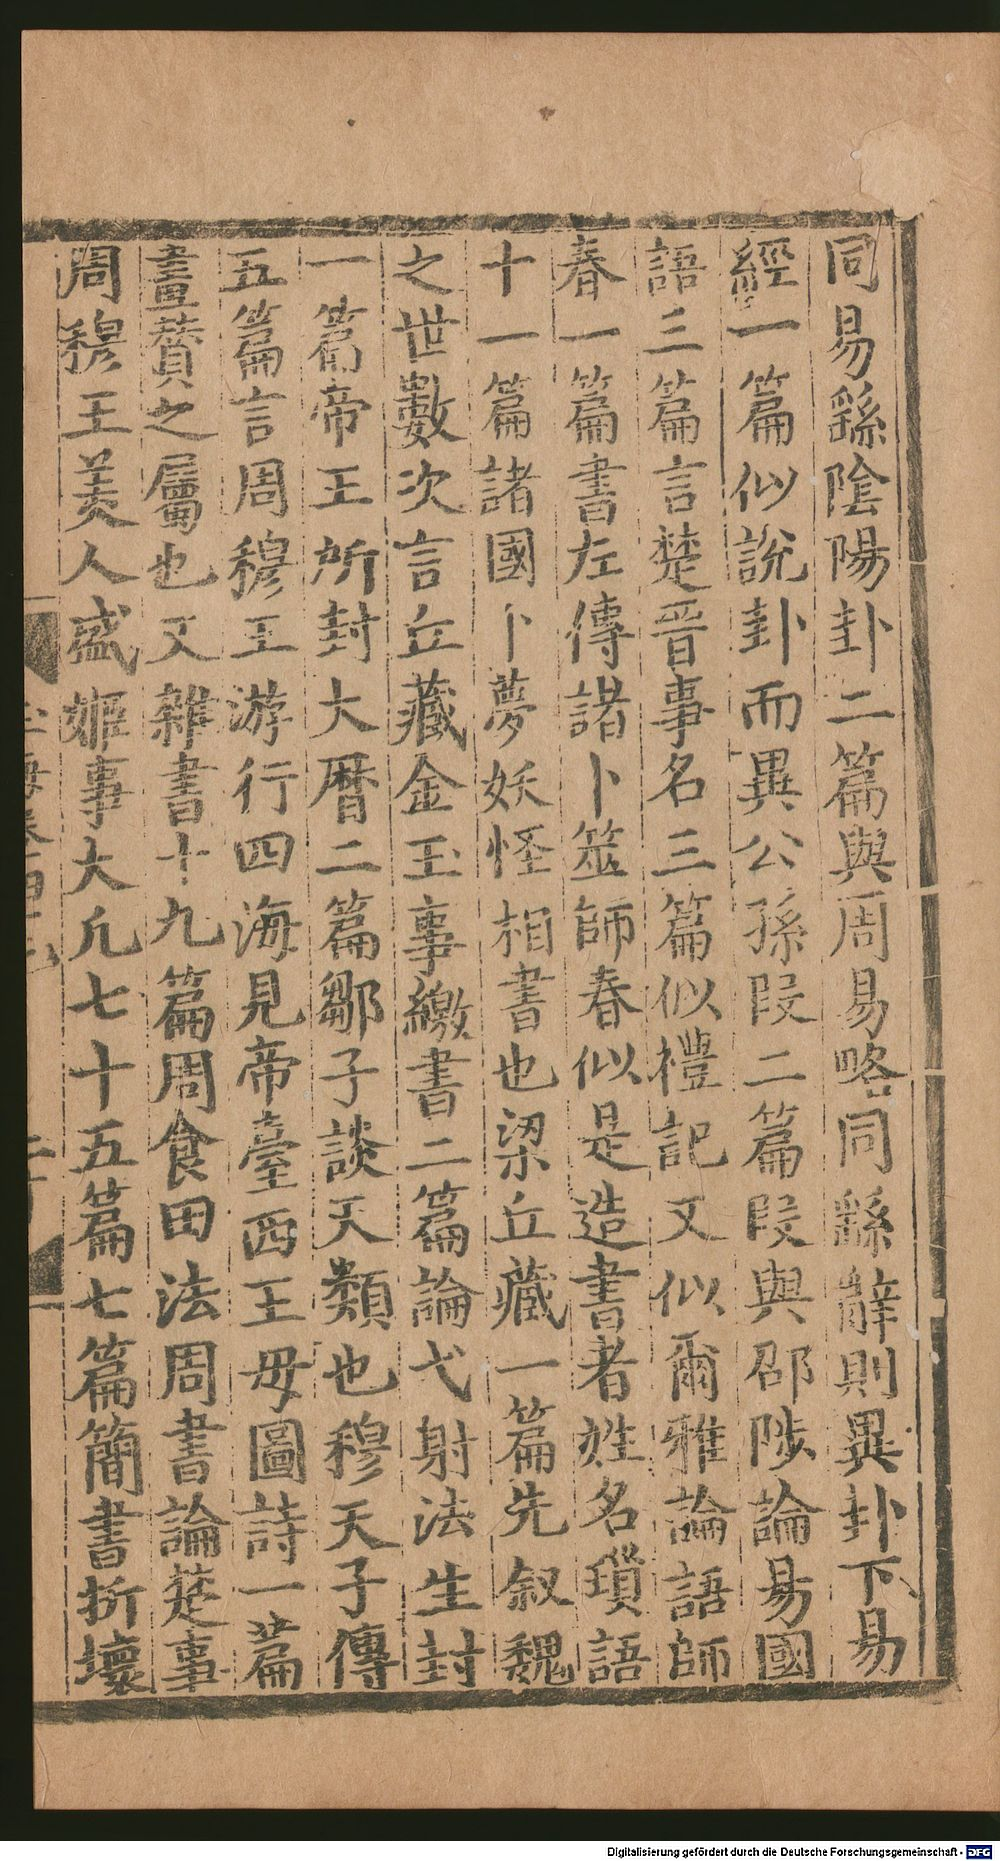 同易繇隂陽卦二篇與周易略同繇辭則異卦下易
經一篇似說卦而異公孫段二篇段與邵陟論易國
語三篇言楚晉事名三篇似禮記又似爾雅論語師
春一篇書左傳諸卜筮師春似是造書者姓名瑣語
十一篇諸國卜夢妖怪相書也梁丘藏一篇先叙魏
之世數次言丘藏金玉事繳書二篇論弋射法生封
一篇帝王所封大曆二篇鄒子談天類也穆天子傳
五篇言周穆王游行四海見帝臺西王母圖詩一篇
畫賛之屬也又雜書十九篇周食田法周書論楚事
周穆王美人盛姬事大凡七十五篇七篇簡書折壞
Digitalisierung gefördert durch die Deutsche Forschungsgemeinschaft - DFG